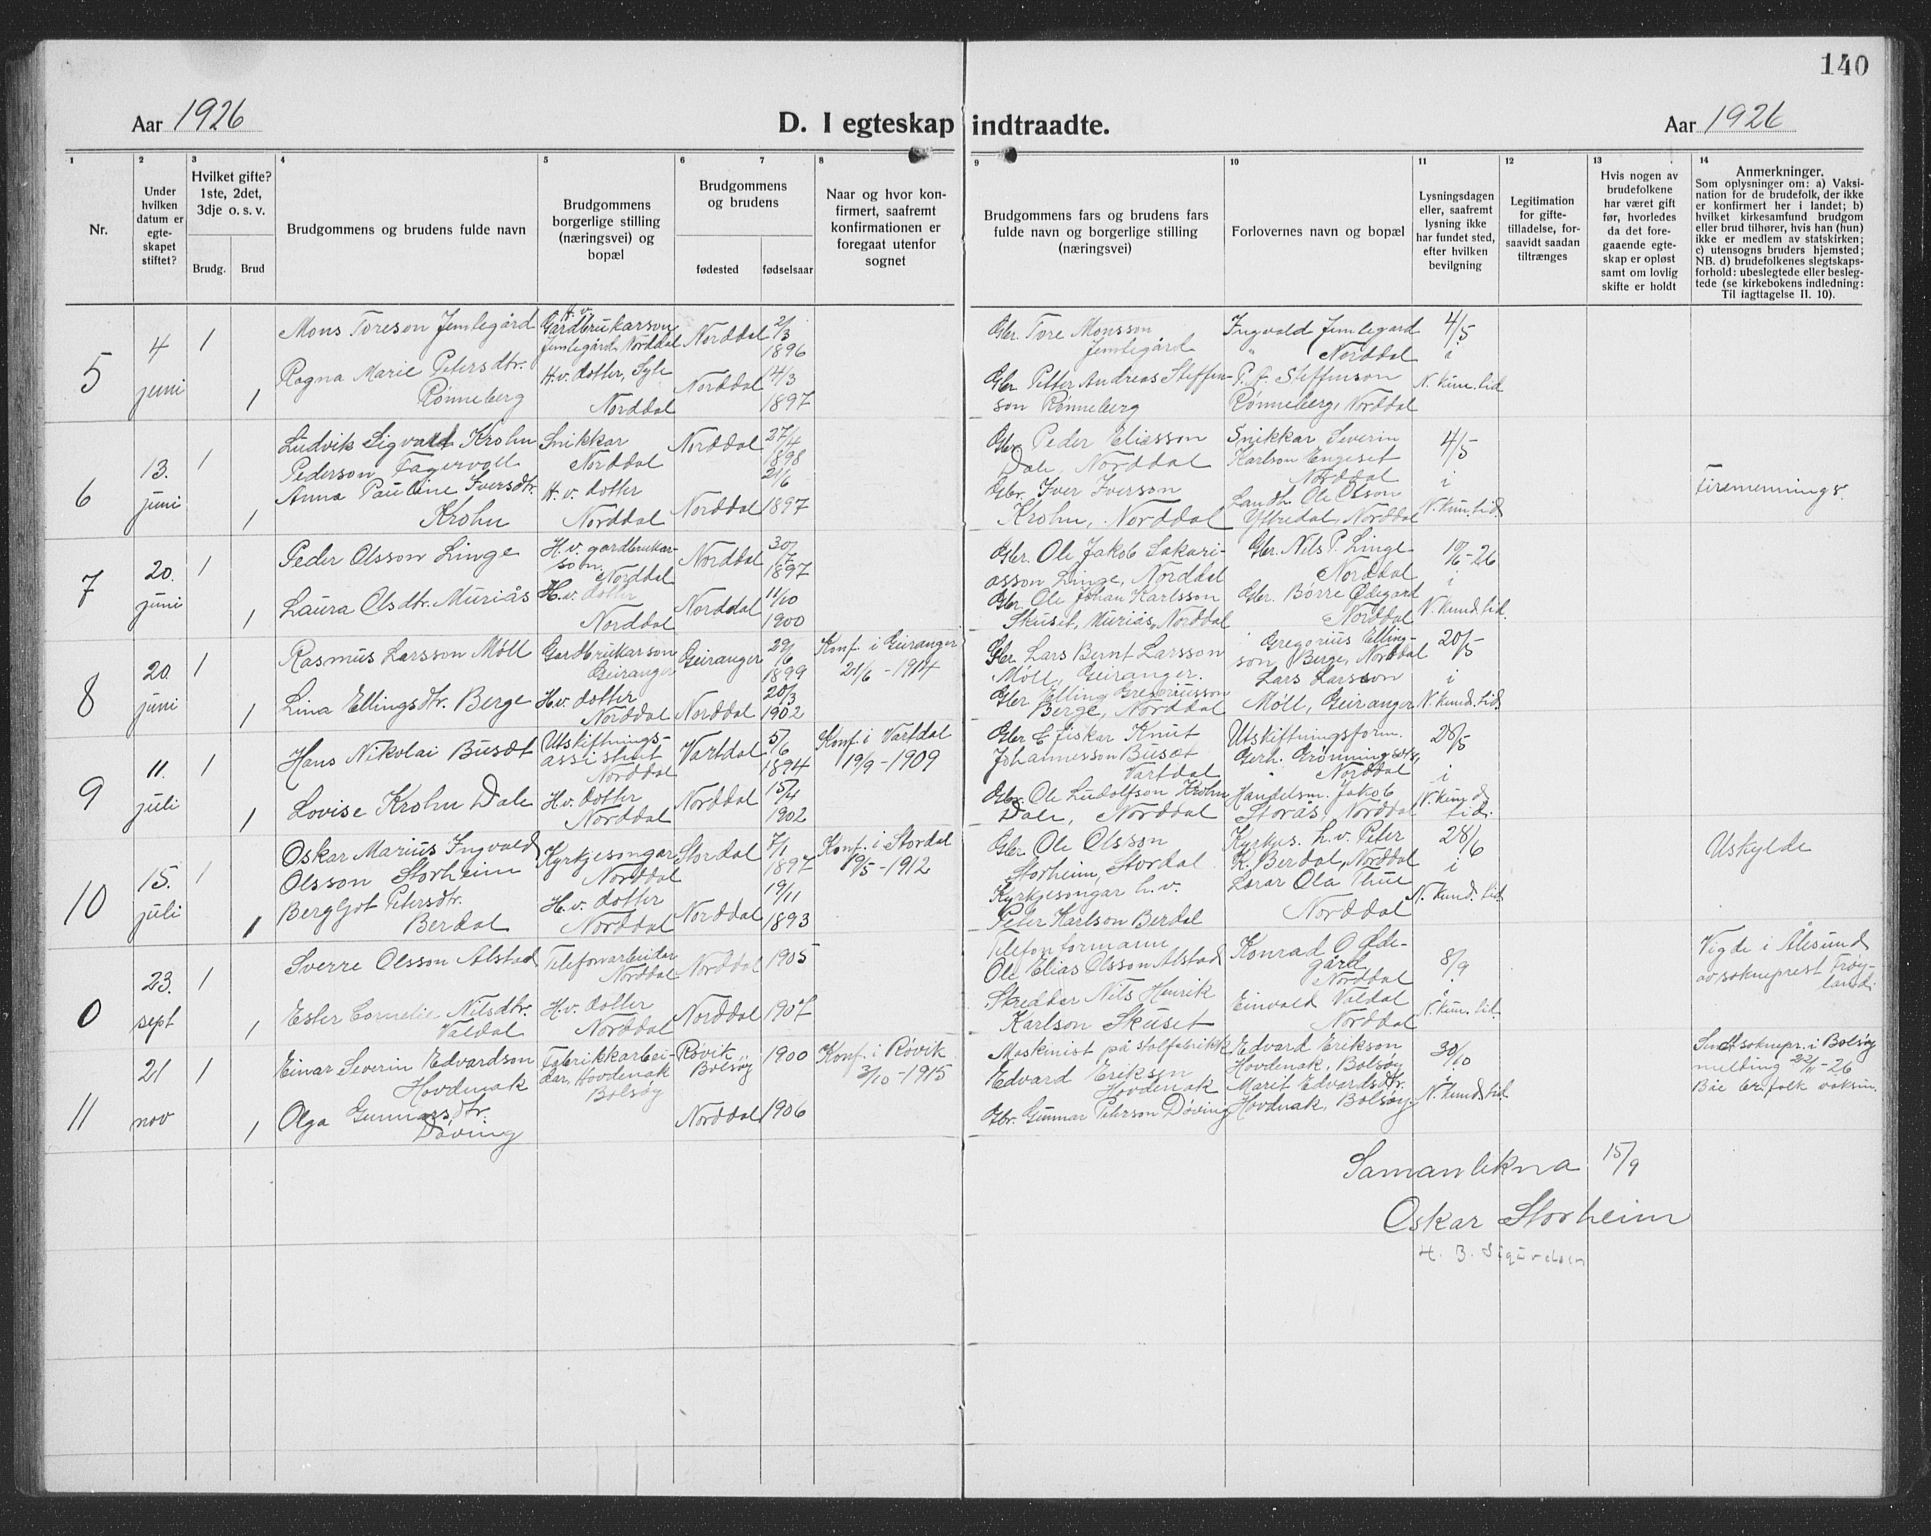 140
Aar 1926
D. I egteskap indtraadte.
Aar 1926
1 2 3 4 5 6 7 8 9 10 11 12 13 14
Nr.
Under hvilken datum er egte-skapet stiftet?
Hvilket gifte? 1ste, 2det, 3dje o. s. v.
Brudg.
Brud
Brudgommens og brudens fulde navn
Brudgommens borgerlige stilling (næringsvei) og bopæl
Brudgommens og brudens
fødested
fødselsaar
Naar og hvor kon-firmert, saafremt konfirmationen er foregaat utenfor sognet
Brudgommens fars og brudens fars fulde navn og borgerlige stilling (næringsvei)
Forlovernes navn og bopæl
Lysningsdagen eller, saafremt lysning ikke har fundet sted, efter hvilken bevilgning
Legitimation for gifte-tilladelse, for-saavidt saadan tiltrænges
Hvis nogen av brudefolkene har været gift før, hvorledes da det fore-gaaende egte-skap er opløst samt om lovlig skifte er holdt
Anmerkninger.
Som oplysninger om: a) Vaksi-nation for de brudefolk, der ikke er konfirmert her i landet; b) hvilket kirkesamfund brudgom eller brud tilhører, hvis han (hun) ikke er medlem av statskirken; c) utensogns bruders hjemsted; NB. d) brudefolkenes slegtskaps-forhold: ubeslegtede eller besleg-tede (se kirkebokens indledning: Til iagttagelse II. 10).
5
4 juni
1
Mons Toreson Jemlegård
H.v. Gardbrukarson Jemlegård, Norddal
Norddal
2/3 1896
Gbr. Tore Monsson Jemlegård
Ingvald Jemlegard " Norddal
4/5 i N. kun. tid
1
Ragna Marie Petersdtr. Rønneberg
H.v. dotter, Sylte Norddal
Norddal
14/3 1897
Gbr. Petter Andreas Steffen-son Rønneberg
P. A. Steffenson Rønneberg, Norddal
6
13. juni
1
Ludvik Sigvald Krohn Pederson Fagervoll
Snikkar Norddal
Norddal
27/4 1898
Gbr. Peder Eliesson Dale, Norddal
Snikkar Severin Karlson Engeset Norddal
4/5 i N. kun. tid.
1
Anna Pauline Iversdtr. Krohn
H.v. dotter Norddal
Norddal
21/6 1897
Gbr. Iver Iverson Krohn, Norddal
Landh. Ole Olson Ytredal, Norddal
Firemennings.
7
20. juni
1
Peder Olsson Linge
H.v. gardbrukar-sson, Norddal
Norddal
30/7 1897
Gbr. Ole Jakob Sakari-asson Linge, Norddal
Gbr. Nils P. Linge Norddal
10/6-26 i N. kund. tid.
1
Laura Olsdtr. Muriås
H.v. dotter Norddal
Norddal
11/10 1900
Gbr. Ole Johan Karlsson Skuset, Muriås, Norddal
Gbr. Børre Ødegard Norddal
8
20. juni
1
Rasmus Larsson Møll
Gardbrukarson Geiranger
Geiranger
29/6 1899
Konf. i Geiranger 21/6-1914
Gbr. Lars Bernt Larsson Møll, Geiranger.
Gregorius Elling-son Berge, Norddal
20/5- i N. kund. tid.
1
Lina Ellingsdtr. Berge
H.v. dotter Norddal
Norddal
20/3 1902
Gbr. Elling Gregoriusson Berge, Norddal
Lars Larsson Møll, Geiranger
9
11. juli
1
Hans Nikolai Busæt
Utskiftnings-assistent Norddal
Vartdal
5/6 1894
Konf. i Vartdal 19/9-1909
Gbr. & fiskar Knut Johannesson Busæt Vartdal
Utskiftningsform. Gerh. Grønningsæter, Norddal
28/5 i N. kund tid.
1
Lovise Krohn Dale
H.v. dotter Norddal
Norddal
15/4 1902
Gbr. Ole Ludolfson Krohn Dale, Norddal
Handelsm. Jakob Storås, Norddal
10
15. juli
1
Oskar Marius Ingvald Olsson Storheim
Kyrkjesongar Norddal
Stordal
7/1 1897
Konf. i Stordal 19/5-1912
Gbr. Ole Olsson Storheim, Stordal
Kyrkjes. h.v. Peter K. Berdal, Norddal
28/6 i N. kund. tid
1
Bergljot Petersdtr. Berdal
H.v. dotter Norddal
Norddal
19/11 1893
Kyrkjesongar h.v. Peter Karlson Berdal
Lærar Ola Thue Norddal
Uskylde
0
23. sept
1
Sverre Olsson Alstad
Telefonarbeidar Norddal
Norddal
1905
Telefonformann Ole Elias Olsson Alstad
Konrad O. Øde-gård, Norddal
8/9 i N. kun. tid.
1
Ester Cornelie Nilsdtr. Valdal
H.v. dotter Norddal
Norddal
1907
Skredder Nils Henrik Karlson Skuset
Einvald Valdal Norddal
Vigde i Ålesund av sokneprest Frøy-land.
11
21 nov
1
Einar Severin Edvardson Hovdenak
Fabrikkarbei-dar, Hovdenak Bolsøy
Røvik Bolsøy
1900
Konf. i Røvik 3/10-1915
Maskinist på stolfabrikk Edvard Erikson Hovdenak
Edvard Erikson Hovdenak, Bolsøy
30/10 i N. kund. tid
1
Olga Gunnarsdtr. Døving
Norddal
1906
Gbr. Gunnar Peterson Døving
Marit Edvardsdtr. Hovdenak, Bolsøy
Sendt soknepr. i Bolsøy melding 22/11-26 Båe er. folk vaksin.
Samanlikna 15/9
Oskar Storheim
H. B. Sigurdson